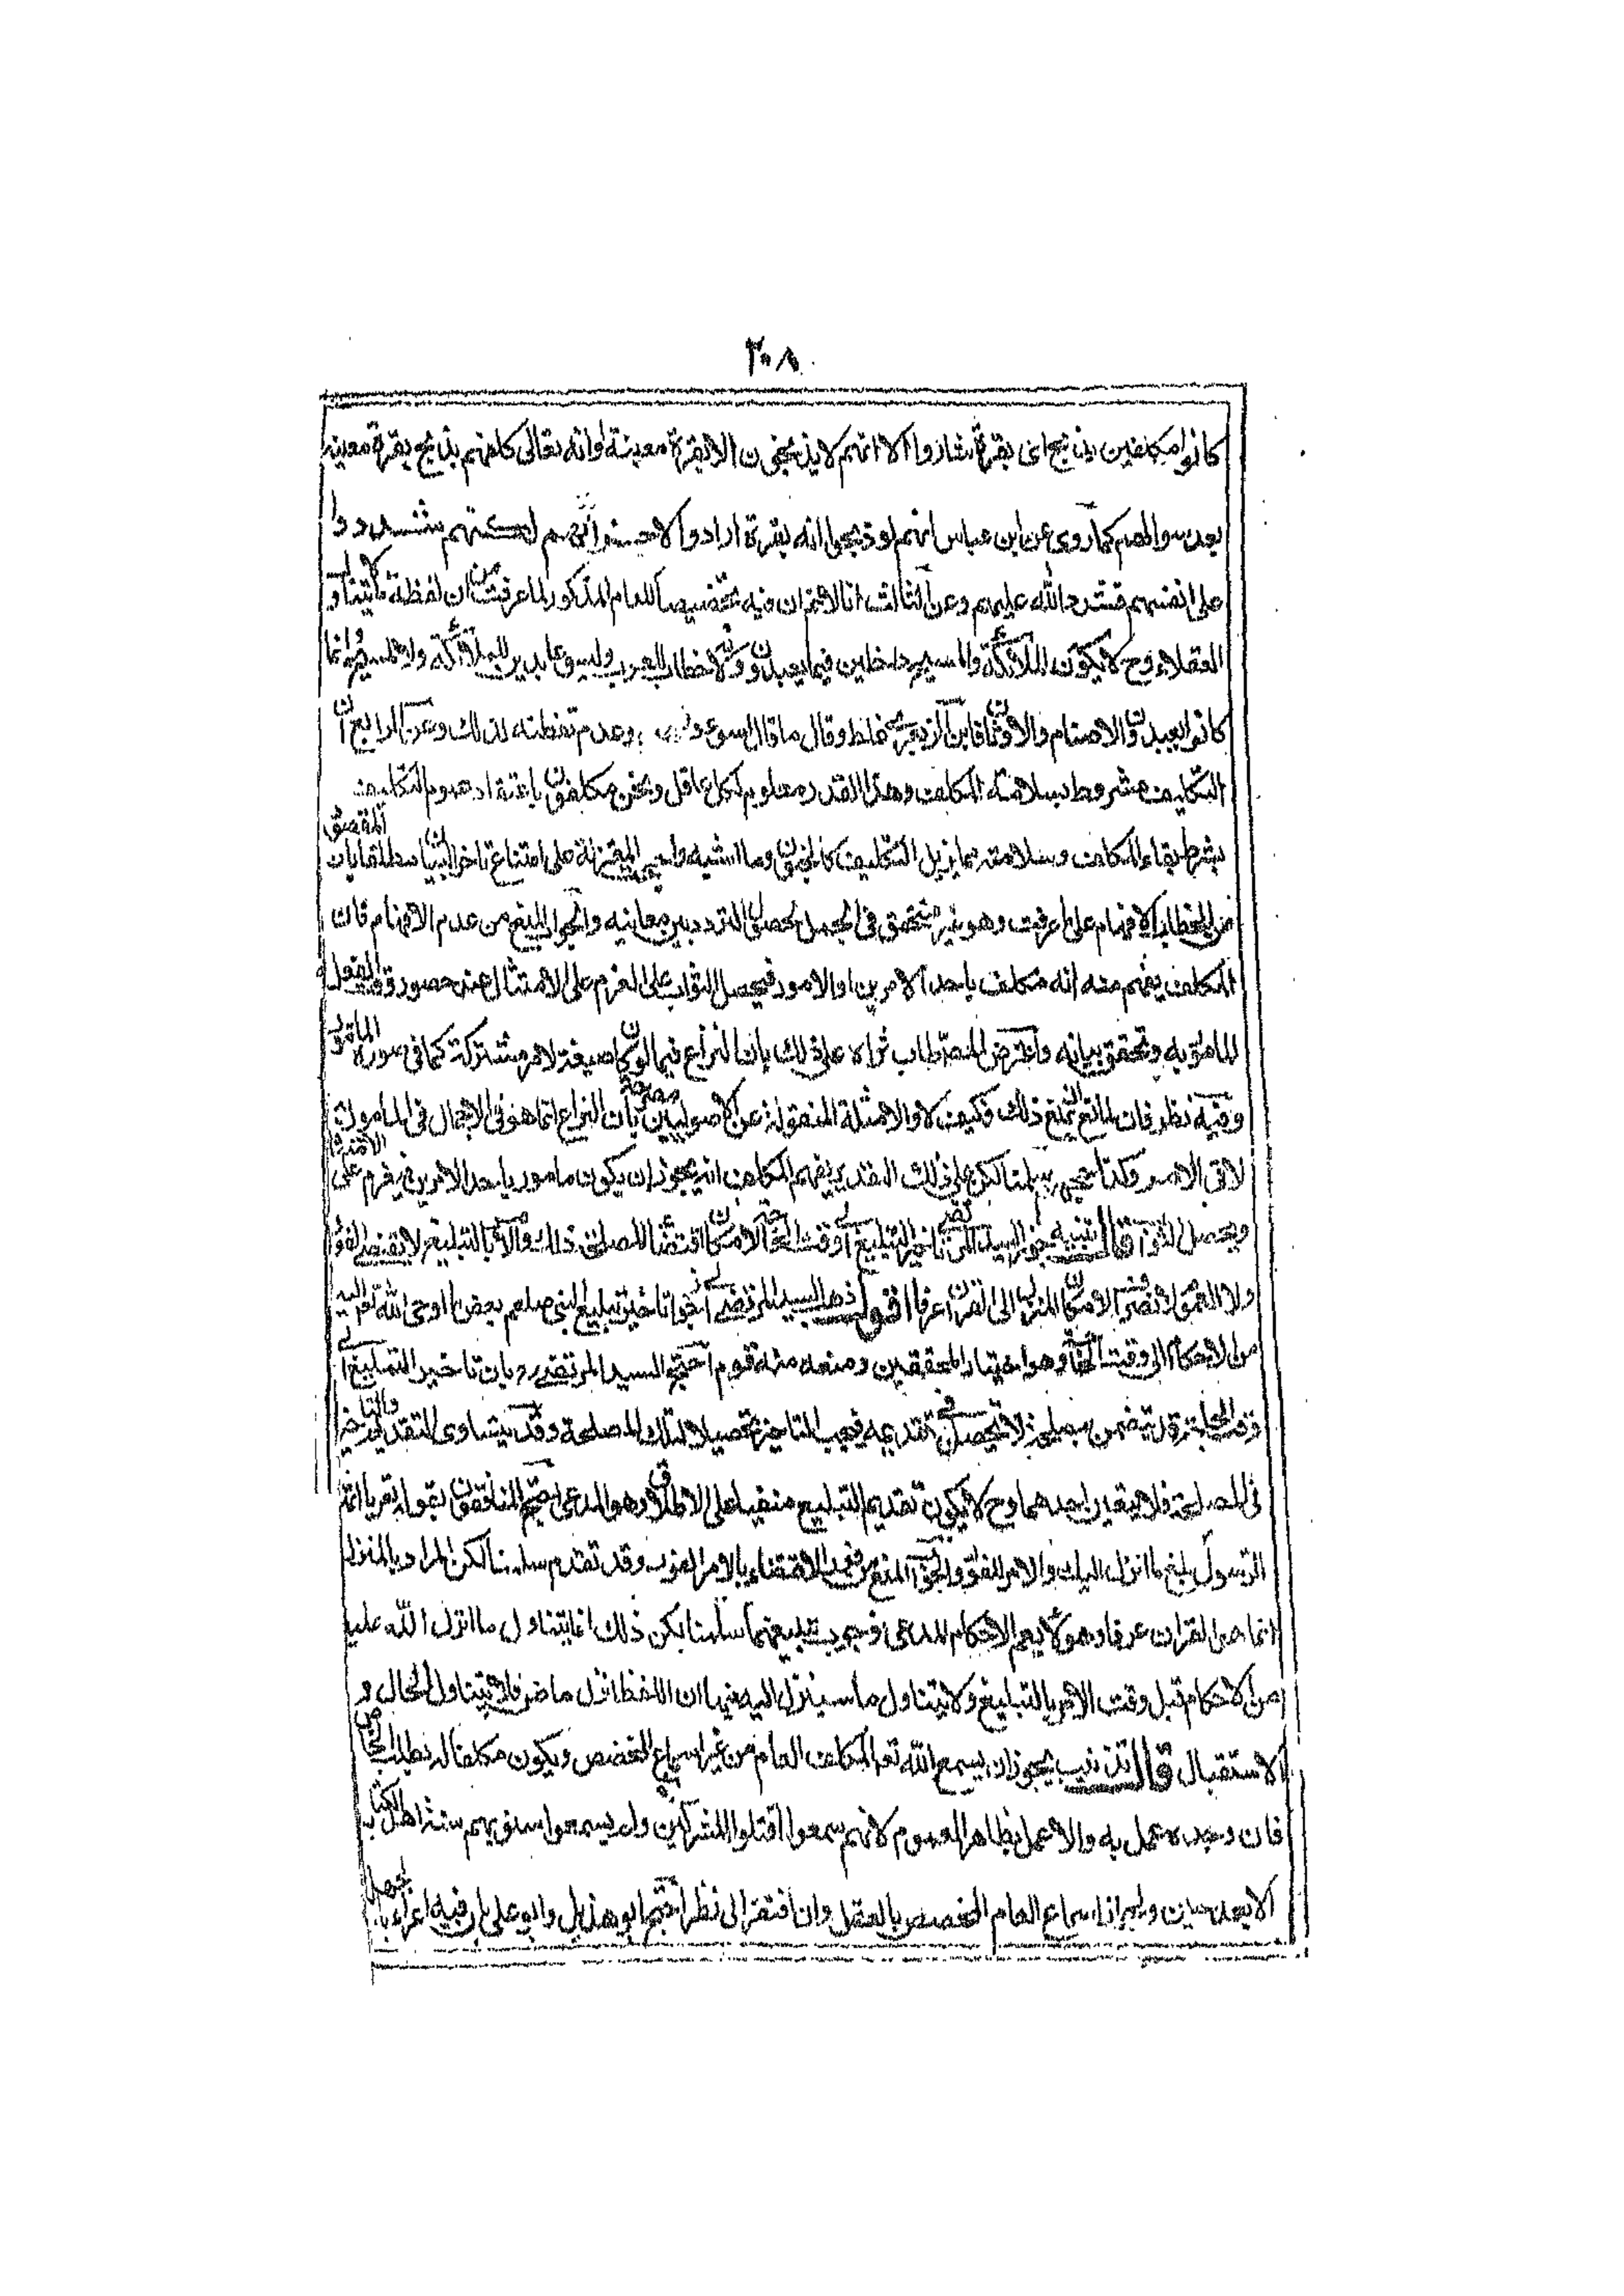 ٢٠٨
كانوا مكلفين بذبح اى بقرة شاؤوا الا انهم لا يذبحون الا بقرة معينة او انه تعالى كلفهم بذبح بقرة معينه
بعد سوالهم كما روى عن ابن عباس انهم لو ذبحوا اية بقرة ارادوا لاجزأتهم لكنهم شددوا
على انفسهم فشدد الله عليهم وعن الثالث انا لا نم ان فيه تخصيصا للعام المذكور لما عرفت من ان لفظة ما لا يتناول
العقلاء وح لا يكون الملائكة والمسيح داخلين فيما يعبدون ولانه خطاب للعرب وليسوا عابدين للملائكة ولا للمسيح وانما
كانوا يعبدون الاصنام والاوثان فابن الزبعرى غلط وقال ما قال لسوء وعدم تفطنه لذلك وعن الرابع ان
التكليف مشروط بسلامة المكلف وهذا القدر معلوم لكل عاقل ونحن مكلفون باعتقاد عموم التكليف
بشرط بقاء المكلف وسلامته عما يزيل التكليف كالجنون وما اشبهه واحتج المعتزلة على امتناع تاخير البيان مطلقا بان المقصود
من الخطاب الافهام على ما عرفت وهو غير متحقق فى المجمل لحصول التردد بين معانيه والجواب المنع من عدم الافهام فان
المكلف يفهم منه انه مكلف باحد الامرين او الامور فيحصل الثواب على العزم على الامتثال عند حضور وقت الفعل
المامور به وتحقق بيانه واعترض المصنف طاب ثراه على ذلك بان النزاع فيما لو كان صيغة الامر مشتركة كما فى صورة المامور
وفيه نظر فان المانع يمنع ذلك وكيف لا والامثلة المنقولة عن الاصوليين مصرحة بان النزاع انما هو فى الاجمال فى المامور به
لا فى الامر وكذا سلمنا لكن على ذلك التقدير يفهم المكلف انه يجوز ان يكون مامورا باحد الامرين فيعزم على الامتثال
ويحصل الثواب قال تنبيه جوز السيد المرتضى تاخير التبليغ الى وقت الحاجة لامكان اقتضاء المصلحة ذلك والامر بالتبليغ لا يقتضى الفور
ولا العموم لانصراف المنزل الى القران عرفا اقول ذهب السيد المرتضى الى جواز تاخير تبليغ النبى صلعم بعض ما اوحى الله تعالى اليه
من الاحكام الى وقت الحاجة وهو اختيار المحققين ومنعه منه قوم احتج السيد المرتضى ره بان تاخير التبليغ الى
وقت الحاجة قد يتضمن مصلحة لا تحصل فى تقديمه فيجب التاخير تحصيلا لتلك المصلحة وقد يتساوى التقديم والتاخير
فى المصلحة فلا يتعين احدهما وح لا يكون تقديم التبليغ متعينا على الاطلاق وهو المدعى احتج المانعون بقوله تع يا ايها
الرسول بلغ ما انزل اليك والامر للفور والجواب المنع من اقتضاء الامر الفور وقد تقدم سلمنا لكن المراد بالمنزل
انما هو القران عرفا وهو لا يعم الاحكام المدعى وجوب تبليغها سلمنا لكن ذلك انما يتناول ما انزل الله عليه
من الاحكام قبل وقت الامر بالتبليغ ولا يتناول ما سينزل اليه فيما ان اللفظ انزل ماض فلا يتناول الحال و
الاستقبال قال تذنيب يجوز ان يسمع الله تع المكلف العام من غير اسماع المخصص ويكون مكلفا لطلب الخاص
فان وجده عمل به والا عمل بظاهر العموم لانهم سمعوا اقتلوا المشركين ولم يسمعوا سنوا بهم سنة اهل الكتاب
الا بعد حين ولجواز اسماع العام المخصص بالعقل وان افتقر الى نظر احتج ابو هذيل وابو على بان فيه اغراء بالجهل